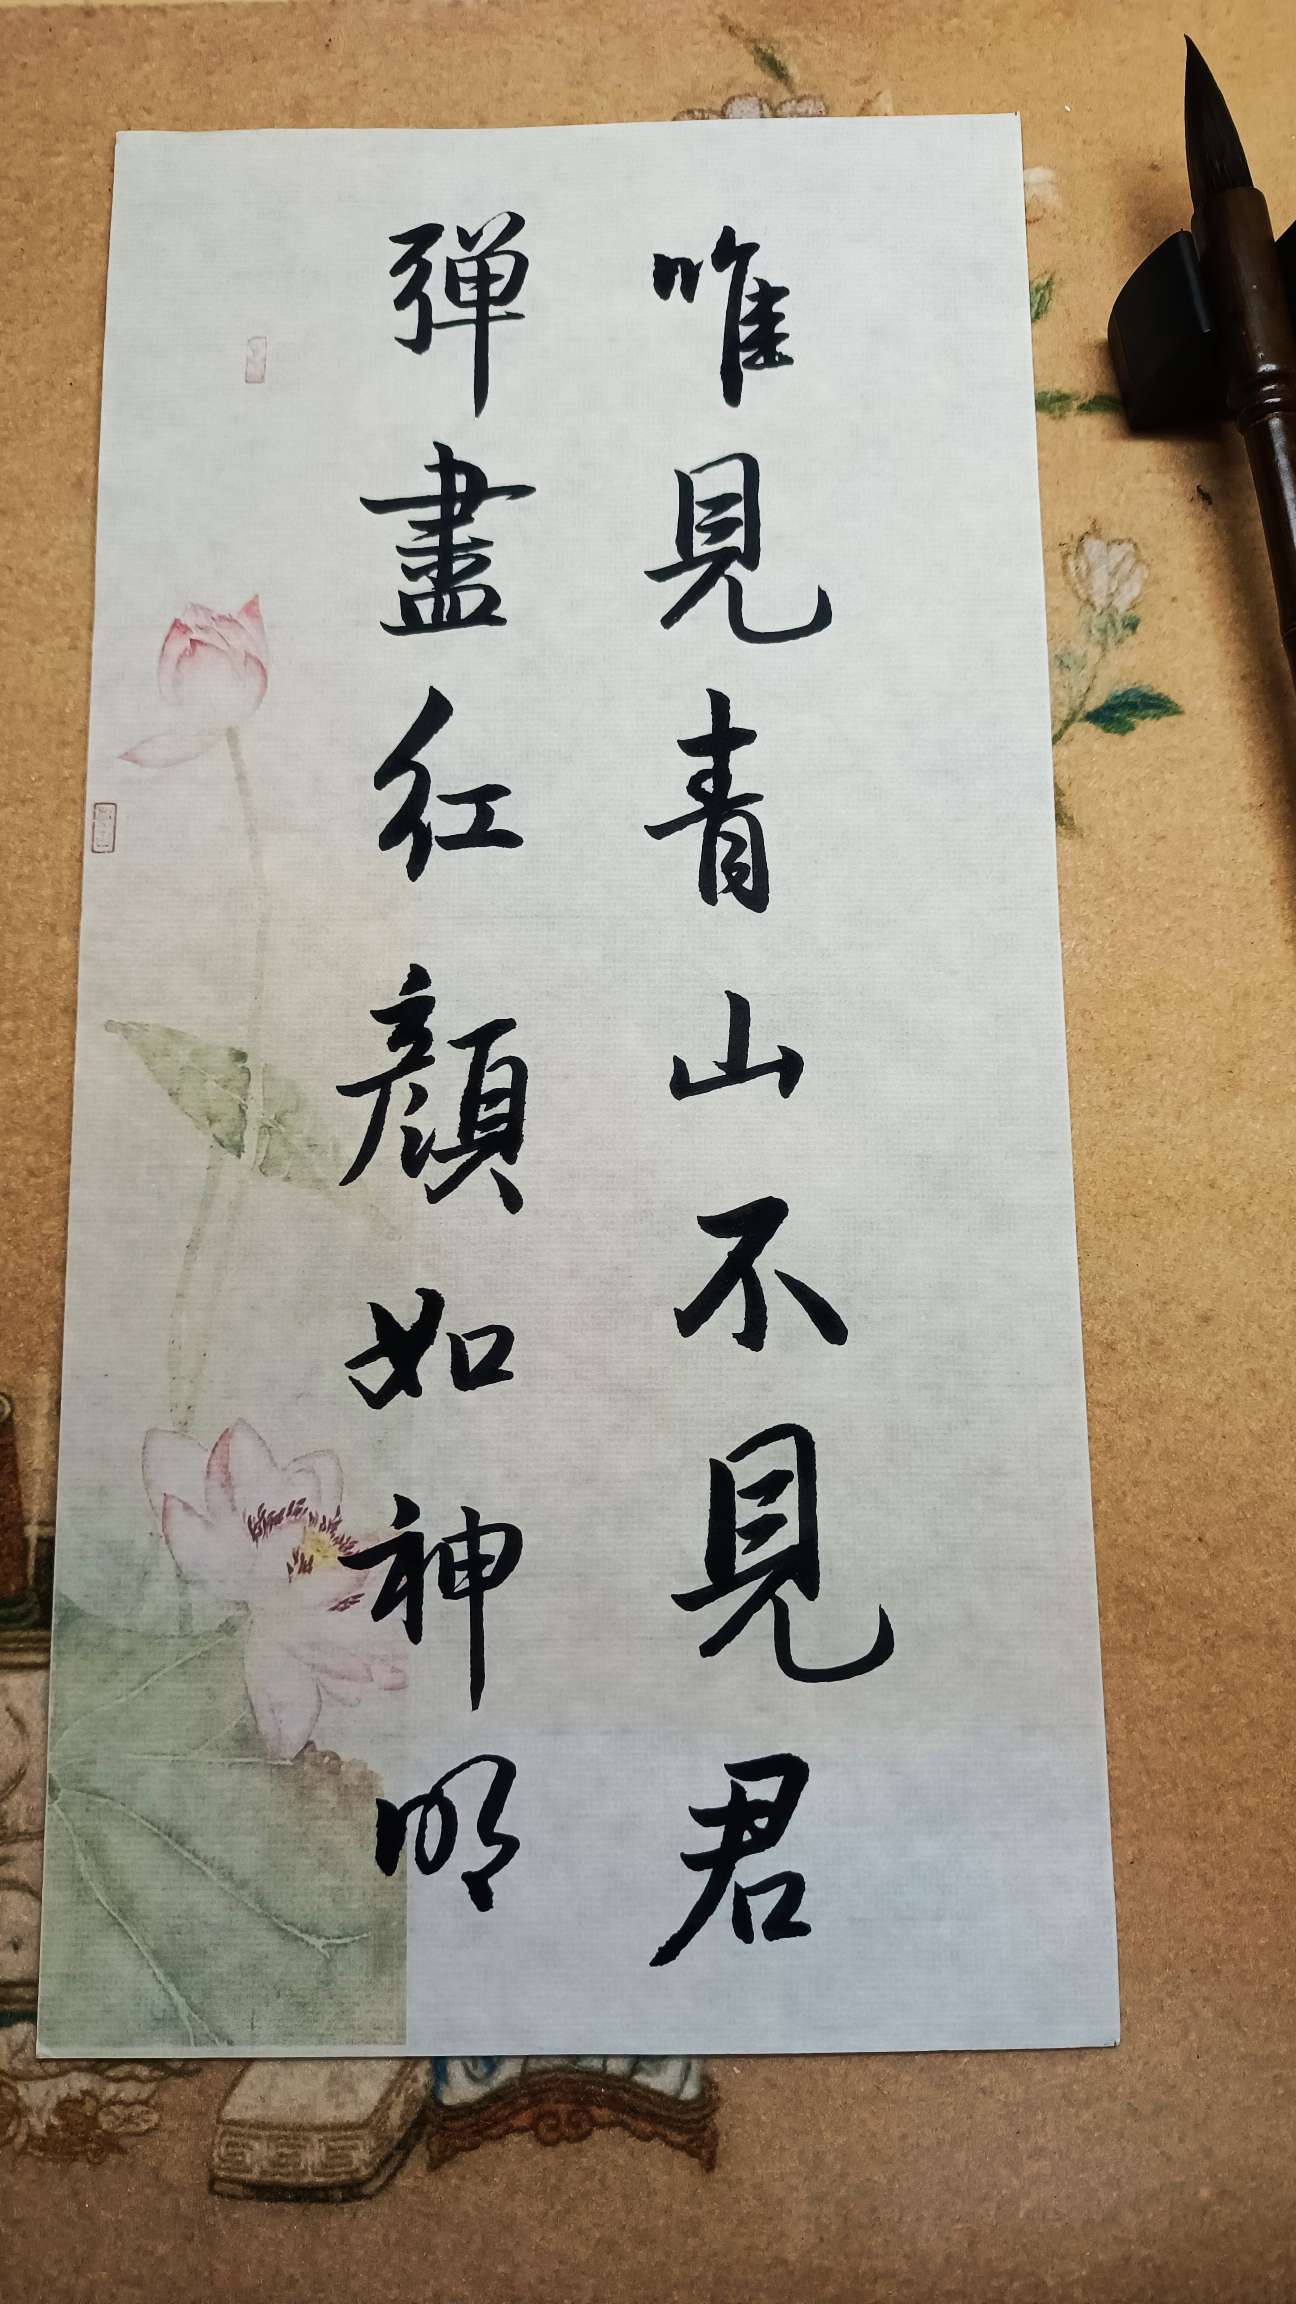 唯見青山不見君
彈盡紅顏如神明